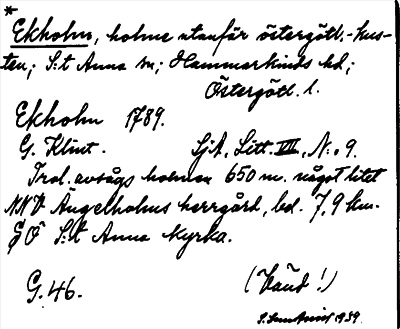 *
Ekholm, holme utanför östergötl.-kus-
ten; S:t Anna sn; Hammarkinds hd;
Östergötl. l.
Ekholm 1789.
G. Klint. SjA, Litt. VII, N:o 9.
Trol. avsågs holmen 650 m. något litet
NNV Ängelholms herrgård, bel. 7,9 km.
SÖ S:t Anna kyrka.
G. 46. (Vänd!)
1939